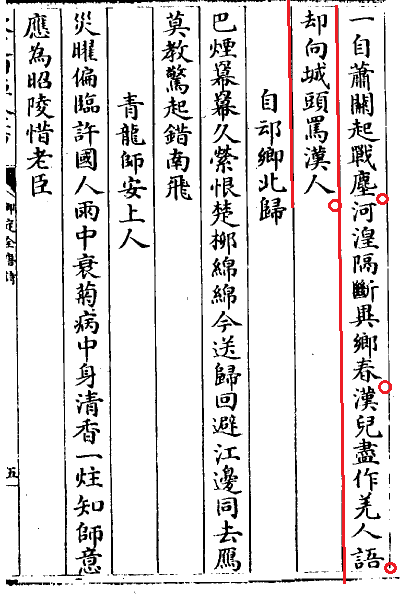 一自蕭關起戰塵河湟隔斷異鄉春漢兒盡作羌人語
却向城頭罵漢人
自邙鄉北歸
巴煙羃羃久縈恨楚栁綿綿今送歸回避江邊同去鴈
莫教驚起錯南飛
青龍師安上人
災曜偏臨許國人雨中衰菊病中身清香一炷知師意
應為昭陵惜老臣
御定全唐詩
五